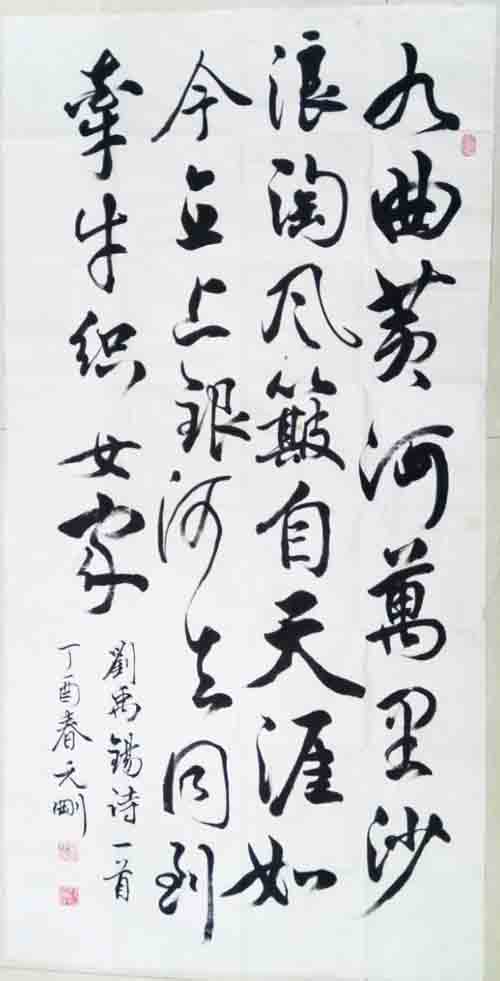 九曲黄河萬里沙
浪淘风簸自天涯如
今直上銀河去同到
牽牛织女家
劉禹锡诗一首
丁酉春天刚